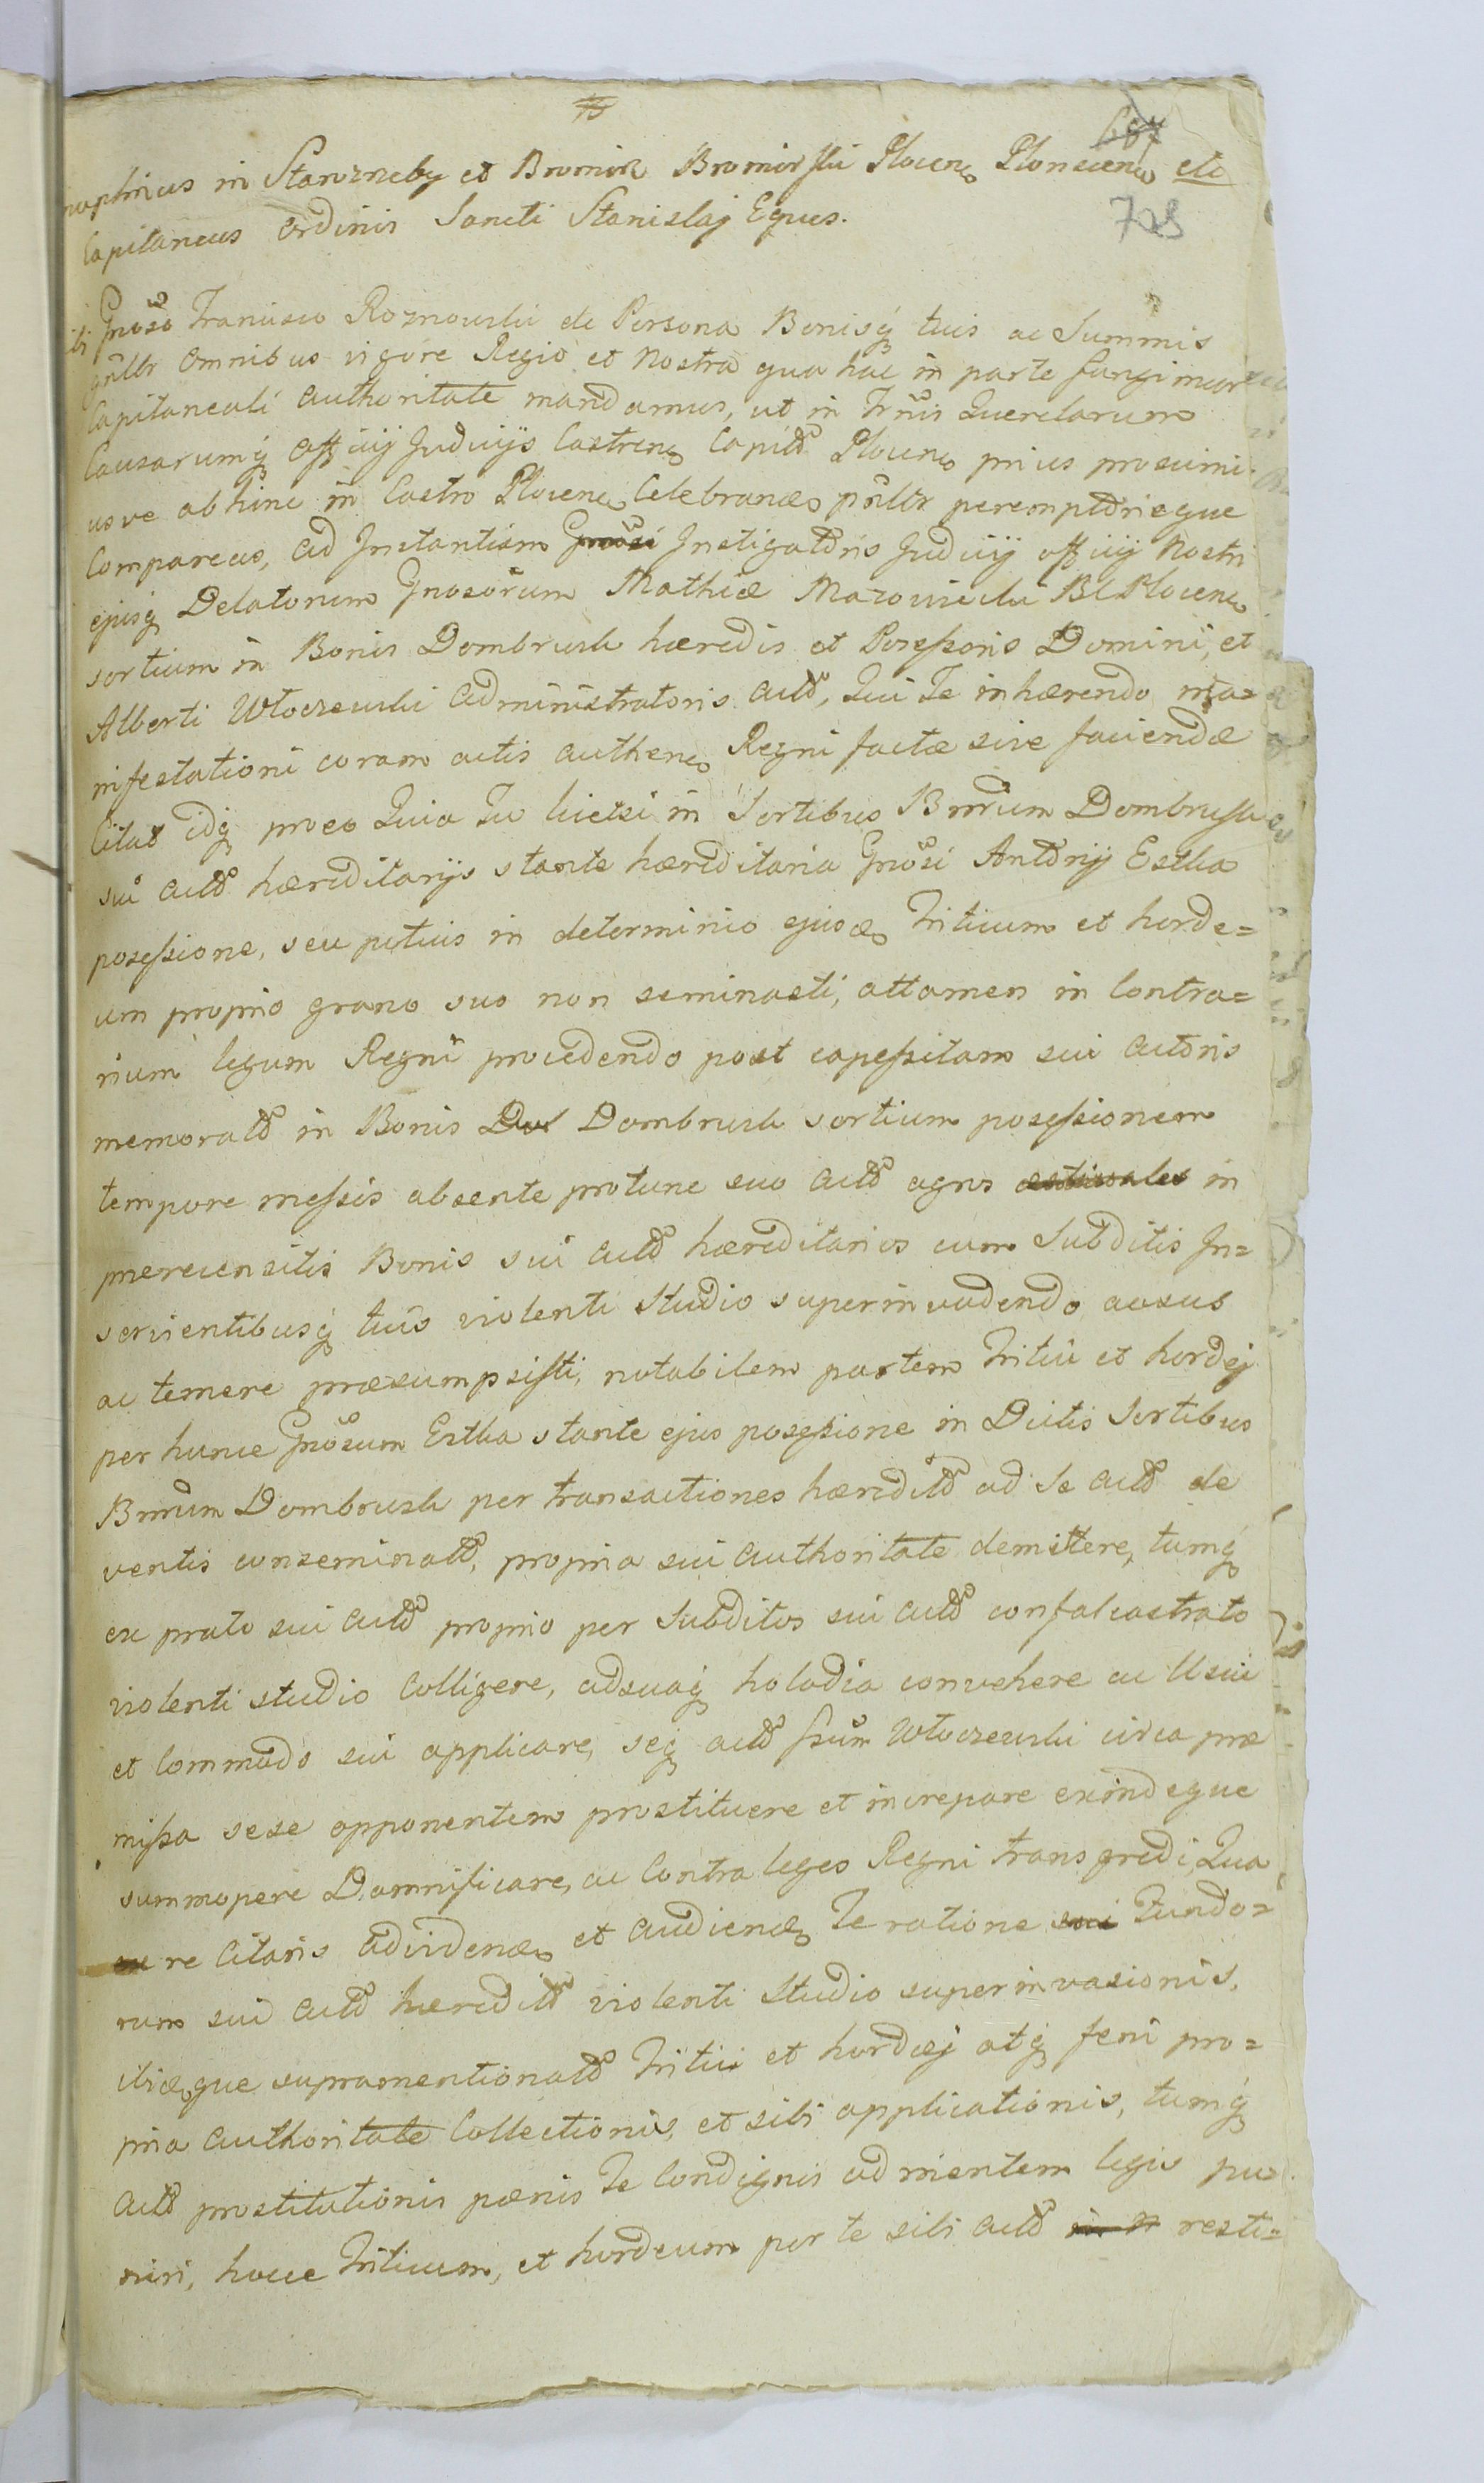 687
728
in Starozreby et Bromirz Bromirski Plocen Plonscen etc
Capitaneus Ordinis Sancti Stanislaj Eques.
Gnoso Francisco Roznowski de Persona Bonisq tuis ac Summis
gnlbr Omnibus vigore Regio et Nostra qua hac in parte fungimur
Capitaneali Authoritate mandamus, ut in Trnis Querelarum
Causarumq officij Judicijs Castren Capitt Plocen prius proximi
usve abhinc in Castro Plocen Celebrand pnltr peremptorieque
Compareas, ad Instantiam Gnosi Instigatoris Judicij officij Nostri
ejusq Delatorum Gnosorum Mathiæ Mazowiecki Bl Plocen
sortium in Bonis Dombrusk hæredis et Possessoris Domini, et
Alberti Wtoczewski Administratoris Actt, Qui Te inhærendo ma=
nifestationi coram actis authen Regni factæ sive faciendæ
Citat idq proeo Quia Tu licetsi in Sortibus Bnrum Dombrusk
sui Actt hæreditarijs stante hæreditaria Gnosi Antonij Estka
possessione, seu potius in determinio ejusd Triticum et horde=
um proprio grano suo non seminasti, attamen in Contra=
rium legum Regni procedendo post capessitam sui Actoris
memoratt in Bonis Dombrusk sortium possessionem
tempore messis absente protunc suo Actt agros æstivales in
præreciensitis Bonis sui Actt hæreditarios cum Subditis In=
servientibusq tuis violenti Studio superinvadendo ausus
ac temere præsumpsisti, notabilem partem Tritici et hordej
per hunce Gnosum Estka stante ejus possessione in Dictis Sortibus
Bnrum Dombrusk per transactiones hæreditt ad Se Actt de
ventis conseminatt, propria sui Authoritate demittere, tumq
ex prato sui Actt proprio per Subditos sui Actt confalcastrato
violenti studio Colligere, adsuaq holodia convehere ac Usui
et Commodo sui applicare, seq Actt Wtoczewski circa præ
missa sese opponentem prostituere et increpare exindeque
summopere Damnificare, ac Contra leges Regni transgredi, Qua
re Citaris advidend et Audiend Te ratione Fundo=
rum sui Actt hæreditt violenti Studio superinvasionis,
ibidque supramentionatt Tritici et hordej atq feni pro=
pria Authoritate Collectionis, et sibi applicationis, tumq
Actt prostitutionis pænis Te Condignis ad mentem legis pu=
niri, hocce Triticum, et hordeum per te sibi Actt resti=